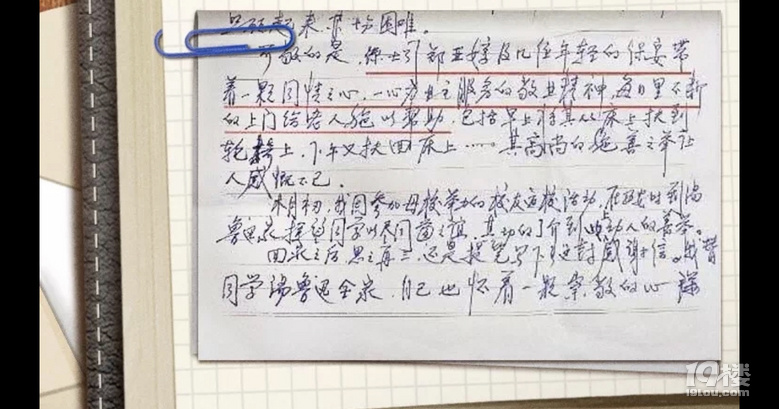 可敬的是,保安引郑亚婷及几位年轻的保安带
着一颗同情之心,一心为业主服务的敬业精神,每日里不断
的上门给老人施以帮助,包括早上将其从床上扶到
轮椅上,下午又扶回床上……其高尚的施善之举让
人感慨不已。
本月初,我因参加母校举办的校友返校活动,在
鲁迅家探望同学以尽同窗之谊,其动的了介到此动人的善举。
回家之后思之再三,还是提笔写下了这封感谢信。我替
同学汤鲁迅全家,自己也怀着一颗崇敬的心
19楼
19lou.com